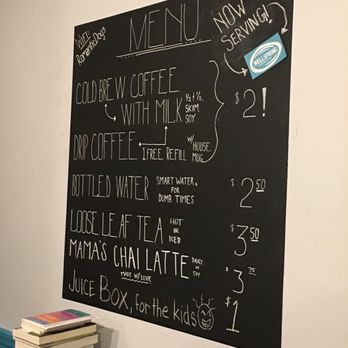 WIFI:
RomanticDays
MENU
NOW
SERVING!
WELLSPRING
COLD BREW COFFEE
WITH MILK
½ & ½,
SKIM,
SOY
$2!
DRIP COFFEE
1 FREE REFILL
W/ HOUSE
MUG
BOTTLED WATER
SMART WATER,
FOR
DUMB TIMES
$2.50
LOOSE LEAF TEA
HOT
OR
ICED
$3.50
MAMA'S CHAI LATTE
MADE W/ LOVE
DAIRY
OR
SOY
$3.75
JUICE BOX, for the kids
$1